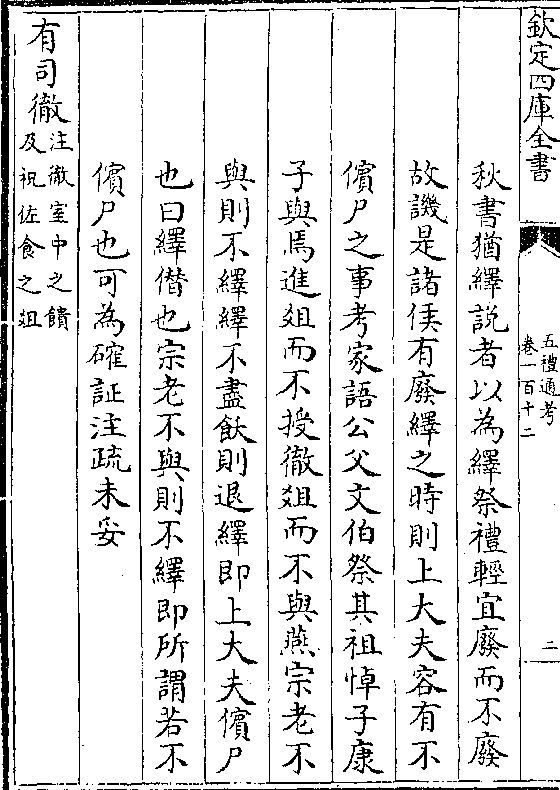 欽定四庫全書
五禮通考
卷一百十二
二
秋書猶繹説者以為繹祭禮輕宜廢而不廢
故譏是諸侯有廢繹之時則上大夫容有不
儐尸之事考家語公父文伯祭其祖悼子康
子與焉進爼而不授徹爼而不與燕宗老不
與則不繹繹不盡飫則退繹即上大夫儐尸
也曰繹僣也宗老不與則不繹即所謂若不
儐尸也可為確証注疏未妥
有司徹注徹室中之饋
及祝佐食之爼